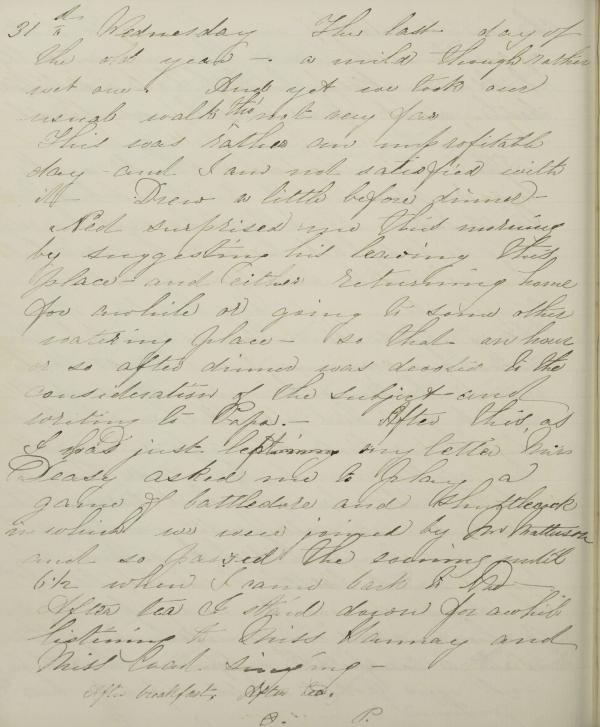 31st Wednesday The last day of
the old year - a mild though rather
wet one. And yet we took our
usual walk tho' not very far
This was rather an unprofitable
day and I am not satisfied with
it - Drew a little before dinner -
Ned surprised me this morning
by suggesting his leaving this
place - and either returning home
for awhile or going to some other
watering place - so that an hour
or so after dinner was devoted to the
consideration of the subject and
writing to Papa. - After this, as
I had just my letter Miss
Deasy asked me to play a
game of battledore and shuttlecock
in which we were joined by Mr
and so passed the evening until
6½ when I came back to Ned
After tea I staid down for awhile
listening to Miss Hannay and
Miss Coad singing -
After breakfast. After tea.
C. P.